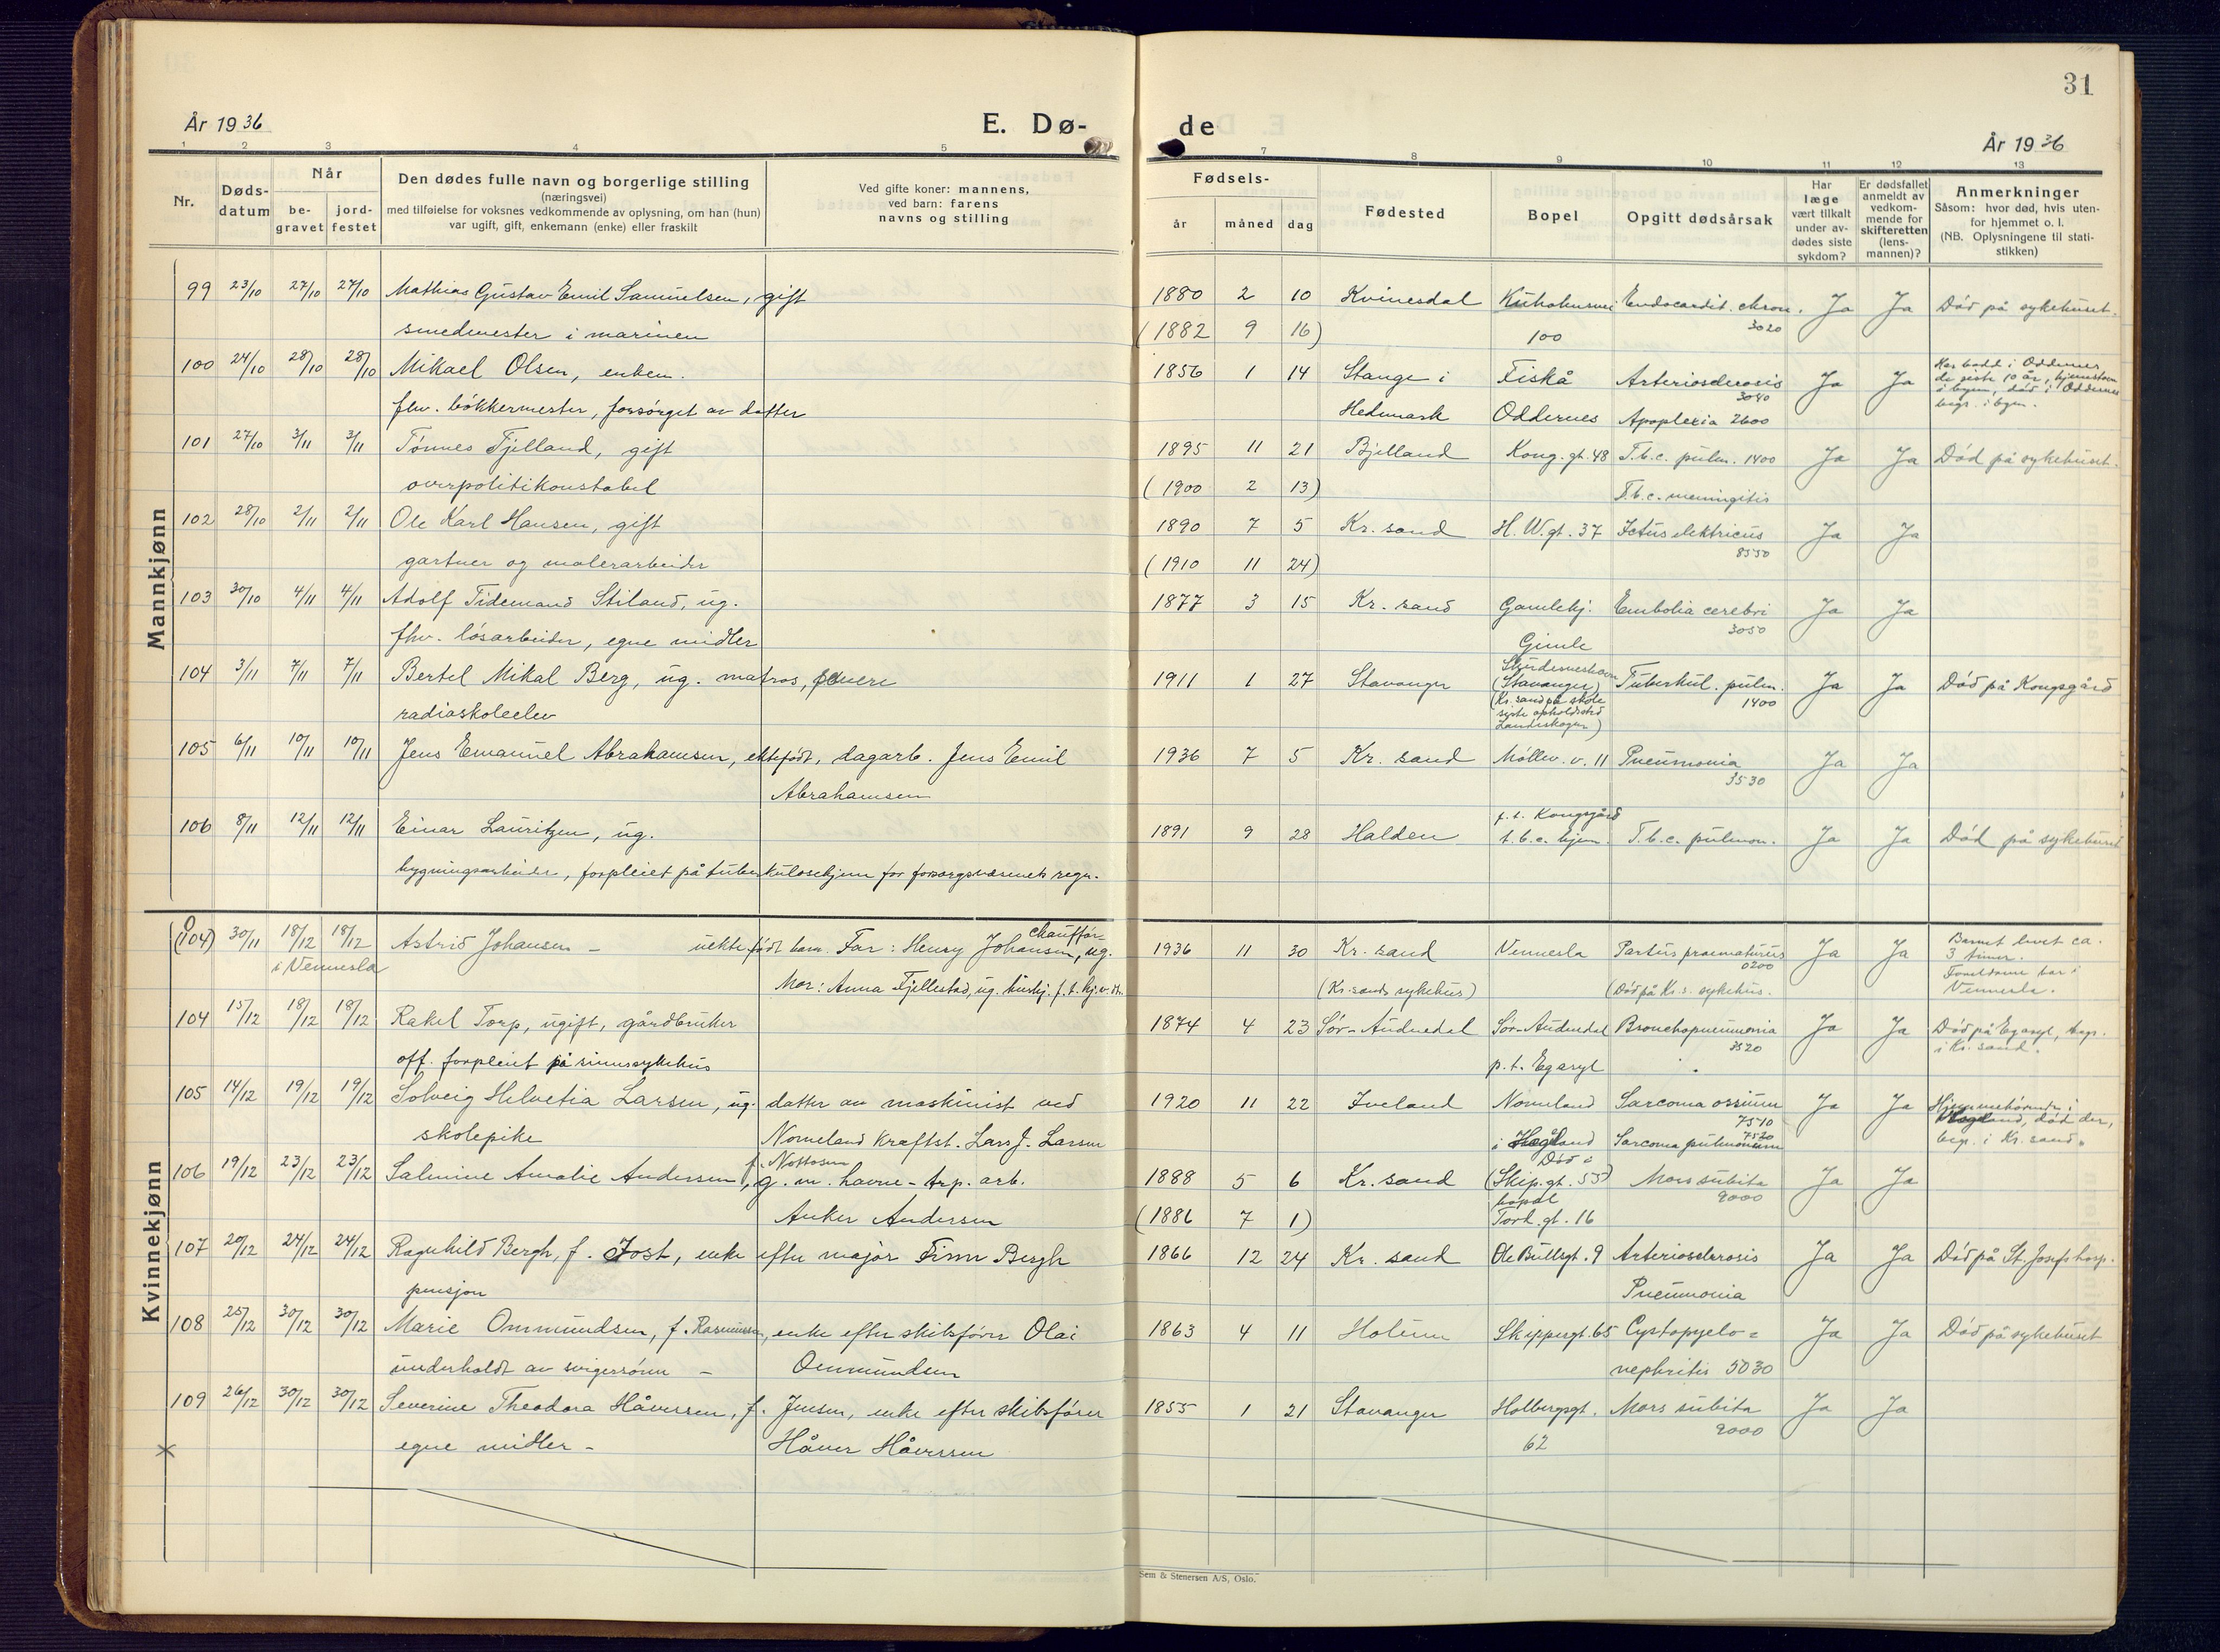 31
År 1936
E. Dø-
de
År 1936
1 2 3 4 5
7 8 9 10 11 12 13
Nr.
Døds-
datum
Når
be-
gravet
jord-
festet
Den dødes fulle navn og borgerlige stilling
(næringsvei)
med tilføielse for voksnes vedkommende av oplysning, om han (hun)
var ugift, gift, enkemann (enke) eller fraskilt
Ved gifte koner: mannens,
ved barn: farens
navns og stilling
Fødsels-
år måned dag
Fødested
Bopel
Opgitt dødsårsak
Har
læge
vært tilkalt
under av-
dødes siste
sykdom?
Er dødsfallet
anmeldt av
vedkom-
mende for
skifteretten
(lens-
mannen)?
Anmerkninger
Såsom: hvor død, hvis uten-
for hjemmet o. l.
(NB. Oplysningene til stati-
stikken)
Mannkjønn
99 23/10 27/10 27/10 Mathias Gustav Emil Samuelsen, gift
smedmester i marinen
1880 2 10 Kvinesdal Endocardit. chron. Ja Ja Død på sykehuset.
(1882 9 16) 100 3020
100 24/10 28/10 28/10 Mikael Olsen, enkem.
fhv. bökkermester, forsörget av datter
1856 1 14 Stange i Fiskå Arteriosclerosis Ja Ja
3040
Hedmark Oddernes Apoplexia 2600
Har bodd i Oddernes
de siste 10 år, hjemstavn
i byen, död i Oddernes
begr. i byen.
101 27/10 3/11 3/11 Tönnes Fjelland, gift
overpolitikonstabel
1895 11 21 Bjelland Kong. gt. 48 T.b.c. pulm. 1400 Ja Ja Död på sykehuset.
(1900 2 13) T.b.c. meningitis
102 28/10 2/11 2/11 Ole Karl Hansen, gift
gartner og malerarbeider
1890 7 5 Kr. sand H. W. gt. 37 Ictus elektricus Ja Ja
8550
(1910 11 24)
103 30/10 4/11 4/11 Adolf Tidemand Stiland, ug.
fhv. lösarbeider, egne midler
1877 3 15 Kr. sand Gamlehj. Embolia cerebri Ja Ja
3050
Gimle
104 3/11 7/11 7/11 Bertel Mikal Berg, ug. matros, senere
radioskoleelev
1911 1 27 Stavanger Tuberkul. pulm. Ja Ja Död på Kongsgård
1400
Skudesneshavn
(Stavanger)
(Kr. sand på skole
siste opholdssted
Landeskogen)
105 6/11 10/11 10/11 Jens Emanuel Abrahamsen, ektefödt, dagarb. Jens Emil
Abrahamsen
1936 7 5 Kr. sand Möllev. v. 11 Pneumonia Ja Ja
3530
106 8/11 12/11 12/11 Einar Lauritzen, ug.
bygningsarbeider, forpleiet på tuberkulosehjem for forsorgsvesenets regn.
p.t. Kongsgård
1891 9 28 Halden t.b.c. hjem. T.b.c. pulmon. Ja Ja Död på sykehuset
Kvinnekjønn
(104) 30/11 18/12 18/12 Astrid Johansen - uekte födt barn. Far: Henry Johansen, chaufför, ug.
i Vennesla
Mor: Anna Fjellestad, ug.
1936 11 30 Kr. sand Vennesla Partus praematurus Ja Ja
0200
(Kr. sands sykehus) (Död på Kr. s. sykehus.
Barnet levet ca.
3 timer.
Foreldrene bor i
Vennesla.
104 15/12 18/12 18/12 Rakel Torp, ugift, gårdbruker
off. forpleiet på sinnssykehus
1874 4 23 Sör-Audnedal Sör-Audnedal Bronchopneumonia Ja Ja Död på Egasyl, begr.
3520
p.t. Egasyl i Kr. sand.
105 14/12 19/12 19/12 Solveig Helvetia Larsen, ug. datter av maskinist ved
skolepike Nomeland Kraftst. Lars J. Larsen
1920 11 22 Iveland Nomeland Sarcoma ossium Ja Ja
7510
i Hægeland Sarcoma pulmonum
7520
Hjemmehörende i
Hægeland, död der,
begr. i Kr. sand.
106 19/12 23/12 23/12 Salmine Amalie Andersen, f. g. m. havne-
Anker Andersen
1888 5 6 Kr. sand (Skip. gt. 55) Mors subita Ja Ja
9000
Död i
bopel
(1886 7 1) Tord. gt. 16
107 20/12 24/12 24/12 Ragnhild Bergh, f. Jost, enke efter major Finn Bergh
pensjon
1866 12 24 Kr. sand Ole Bullsgt. 9 Arteriosclerosis Ja Ja Död på St. Josefs hosp.
Pneumonia
108 25/12 30/12 30/12 Marie Ommundsen, f. Rasmussen, enke efter skibsförer Olai
underholdt av svigersönn - Ommundsen
1863 4 11 Holum Skippergt. 65 Cystopyelo= Ja Ja Död på sykehuset
nephritis 5030
109 26/12 30/12 30/12 Severine Theodora Håversen, f. Jensen, enke efter skibsförer
egne midler - Håver Håversen
1855 1 21 Stavanger Holbergsgt. Mors subita Ja Ja
62 9000
Sem & Stenersen A/S, Oslo.